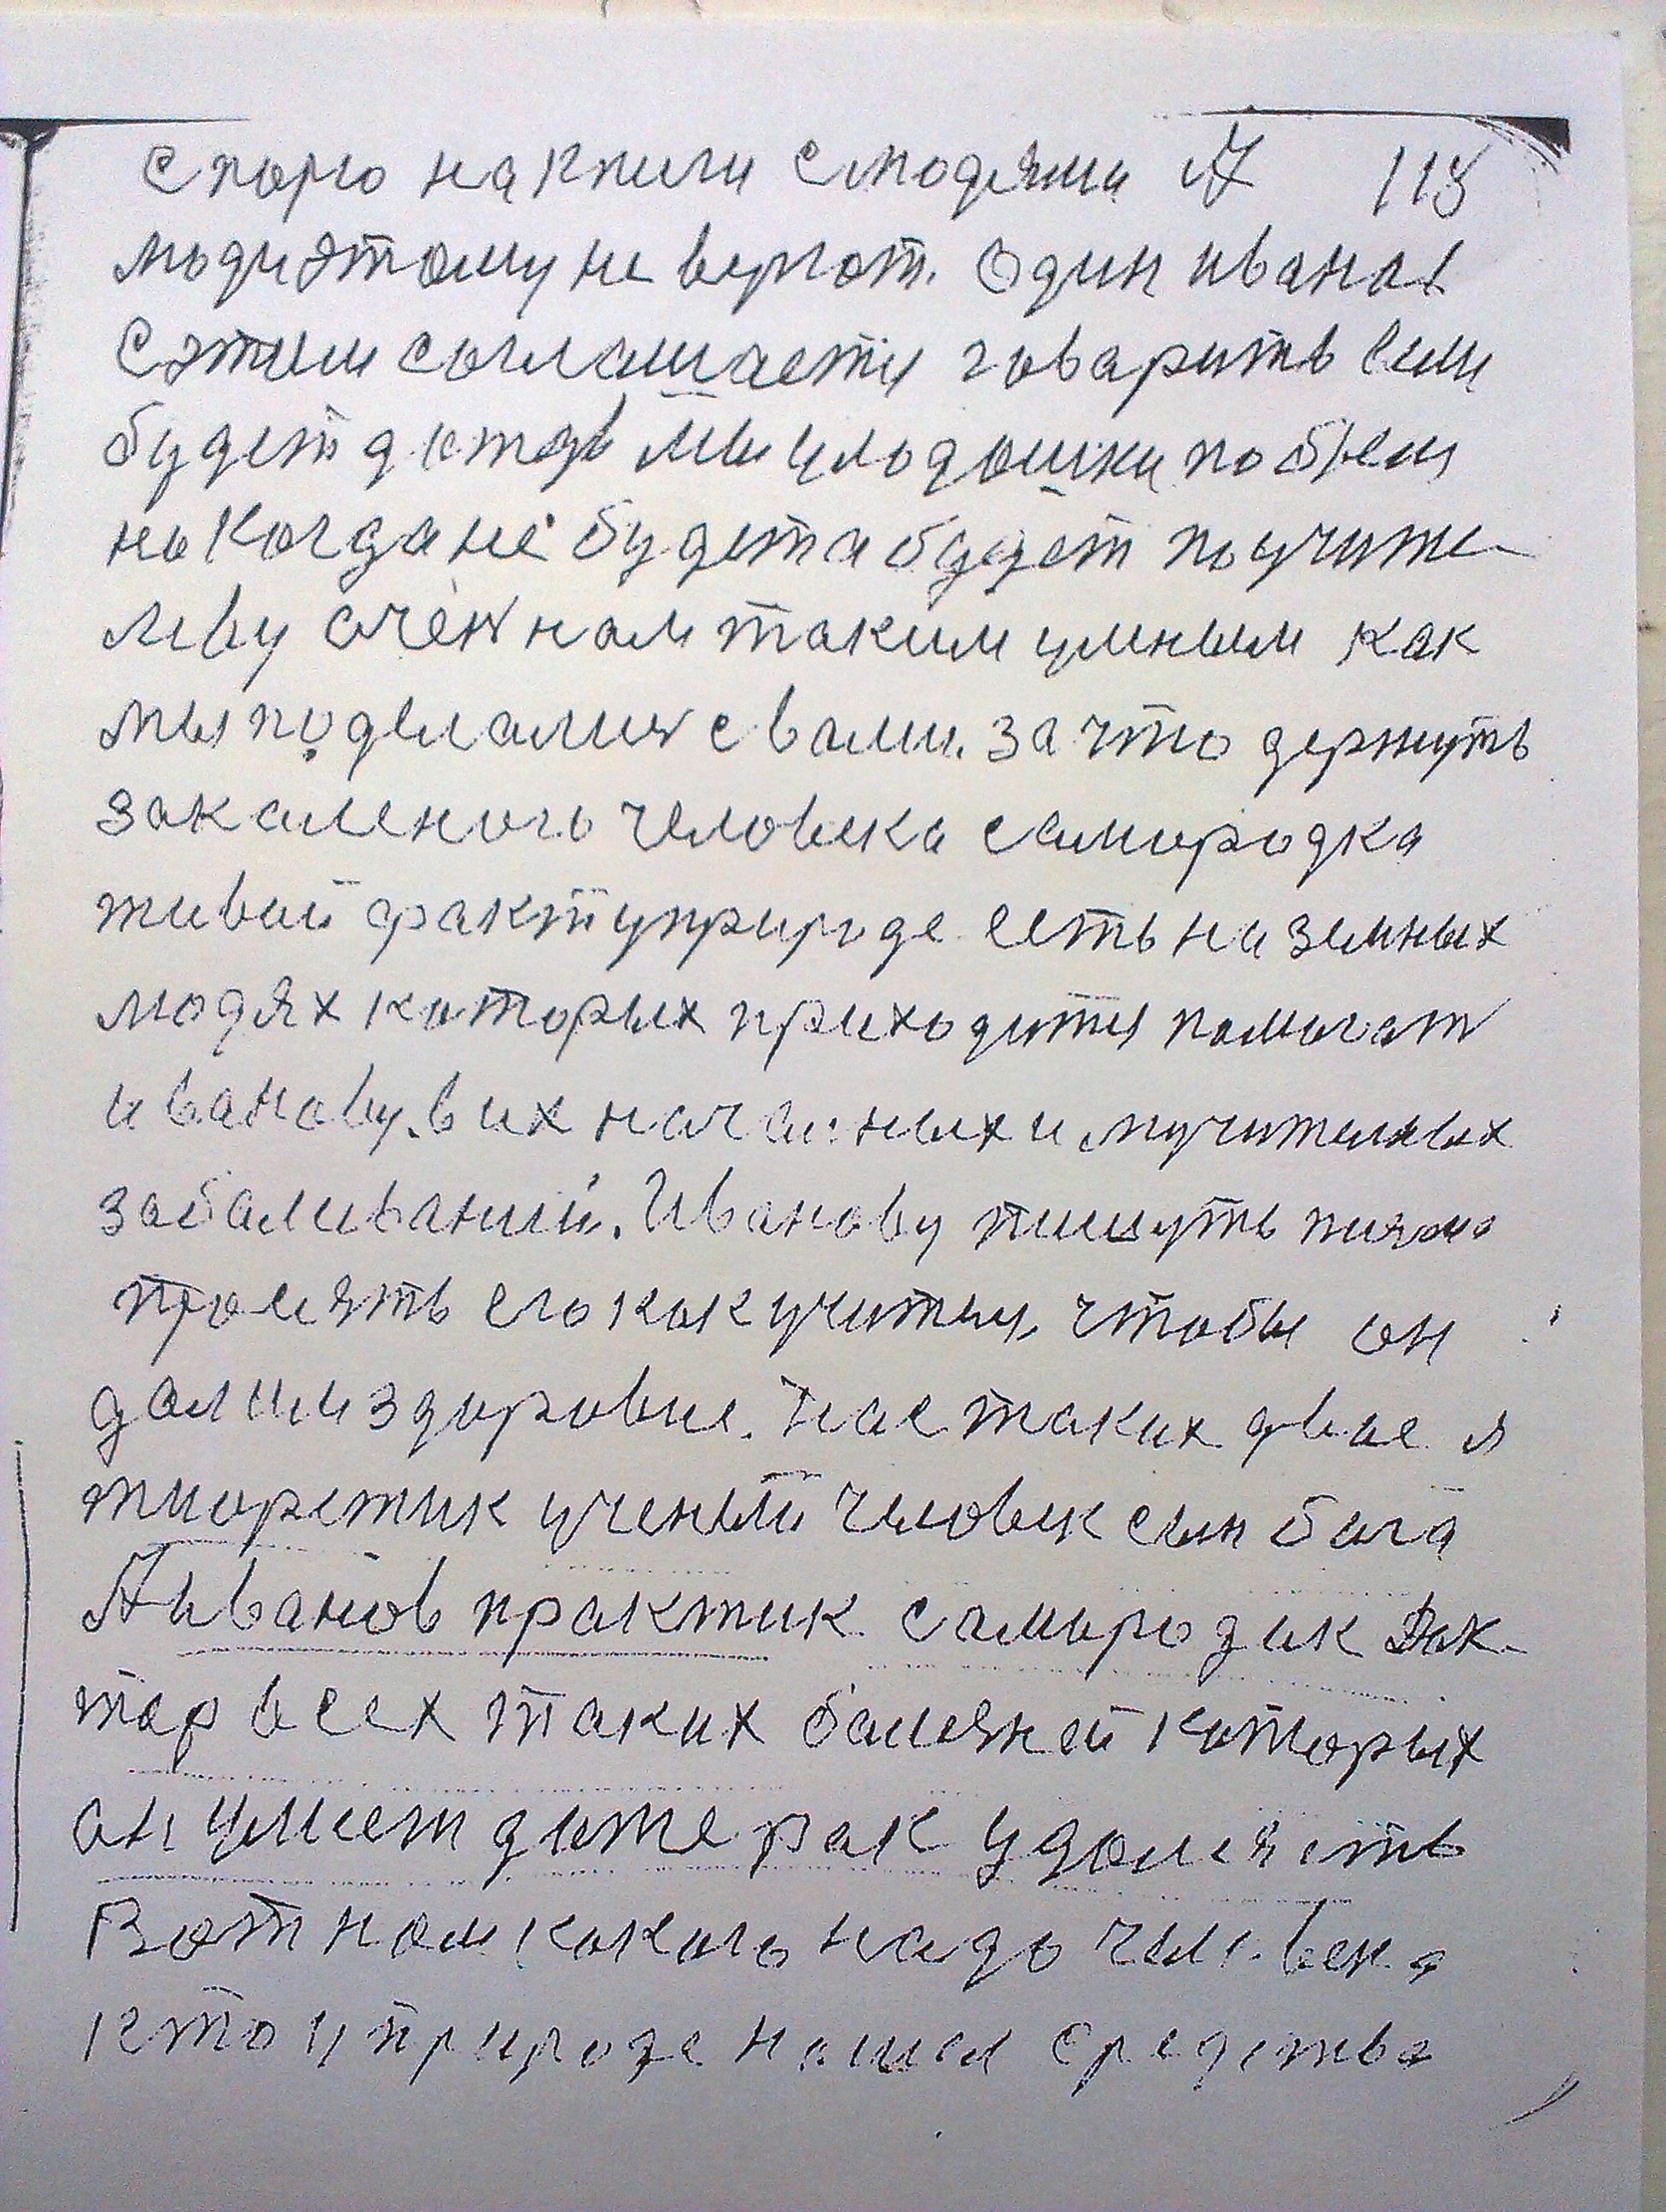 спорю накпили слюдями А 113
люди этому не верют. Один иванов
С этим соглашаеты говарить если
будеть у
но когда не будет а будет по учите
лву очен нам таким умным как
мы поделалис с вами. За что держуть
закаленого человека самородка
живой факт у природе есть на земных
людях которых приходиты помагат
иванову. в их и мучителных
забаливаний. Иванову пишуть
просять его как учитыл, чтобы он
дал им здоровие. Нас таких двое я
тиоретик ученый человек сын бога
А иванов практик самородик Док-
тор всех таких балезней которых
он умеет даже рак удалять
Вот нам какого надо человека
кто у природе нашел средства